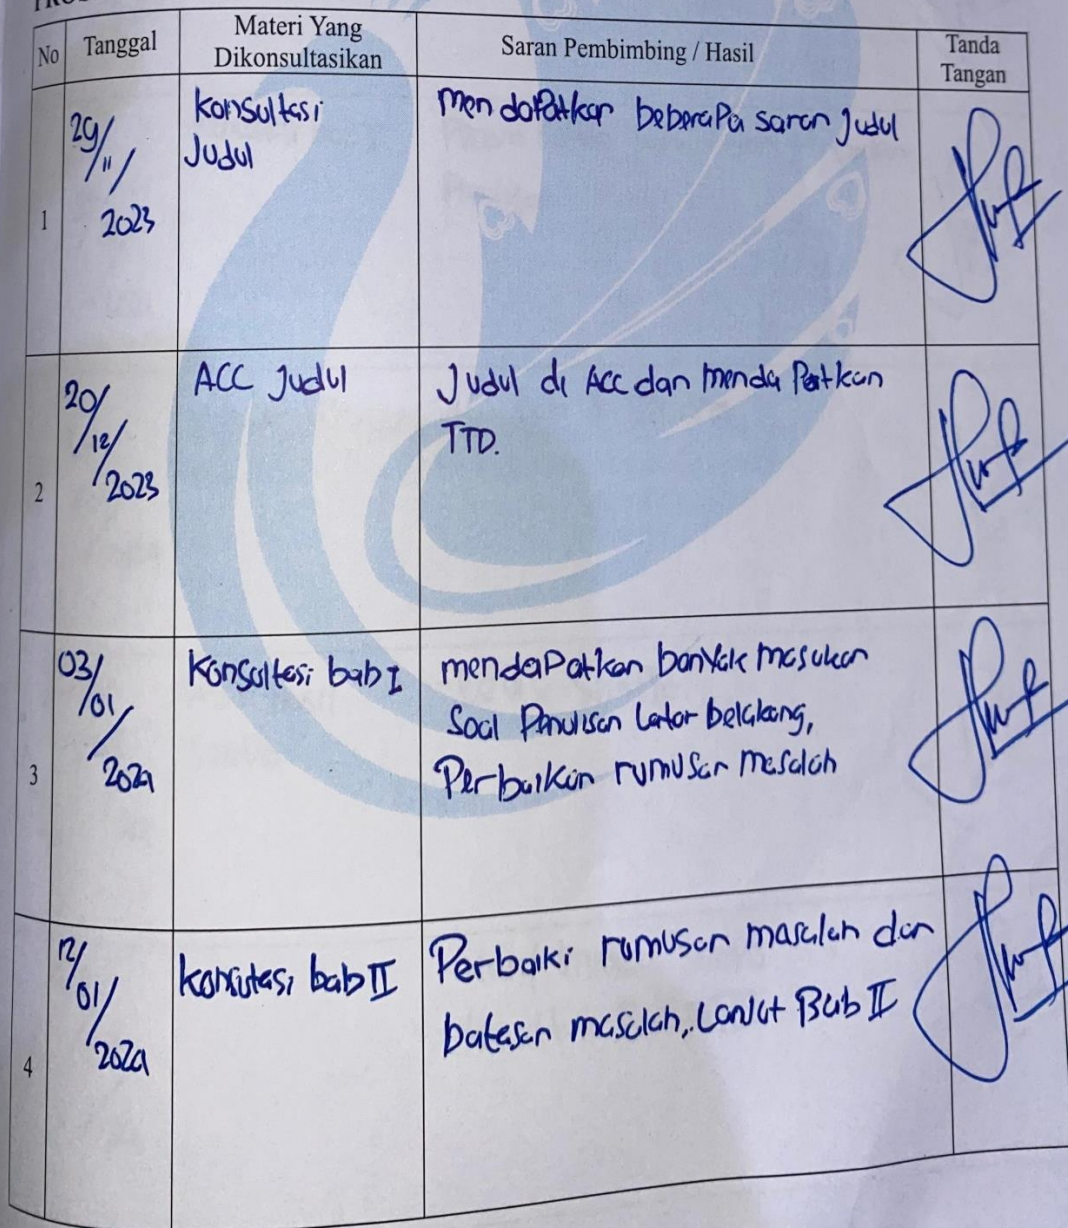 No
Tanggal
Materi Yang
Dikonsultasikan
Saran Pembimbing / Hasil
Tanda
Tangan
1
29/
11/
2023
Konsultasi
Judul
mendapatkan beberapa saran Judul
2
20/
12/
2023
ACC Judul
Judul di Acc dan mendapatkan
TTD.
3
03/
01/
2024
Konsultasi bab I
mendapatkan banyak masukan
Soal Penulisan Latar belakang,
Perbaikan rumusan masalah
4
12/
01/
2024
konsutasi bab II
Perbaiki rumusan masalah dan
batasan masalah, Lanjut Bab II